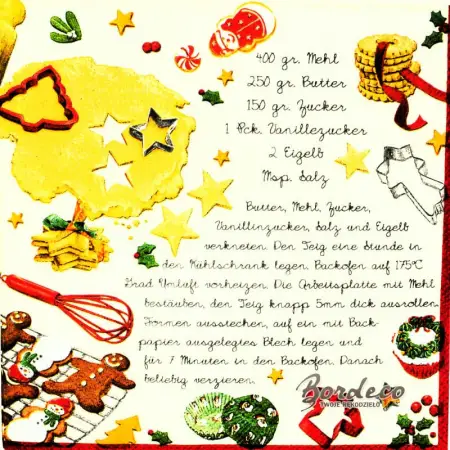 400 gr. Mehl
250 gr. Butter
150 gr. Zucker
1 Pck. Vanillezucker
2 Eigelb
Msp. Salz
Butter, Mehl, Zucker,
Vanillinzucker, Salz und Eigelb
verkneten. Den Teig eine Stunde in
den Kühlschrank legen. Backofen auf 175°C
Grad Umluft vorheizen. Die Arbeitsplatte mit Mehl
bestäuben, den Teig knapp 5mm dick ausrollen.
Formen ausstechen, auf ein mit Back-
papier ausgelegtes Blech legen und
für 7 Minuten in den Backofen. Danach
beliebig verzieren.
Bordeco
TWOJE RĘKODZIEŁO